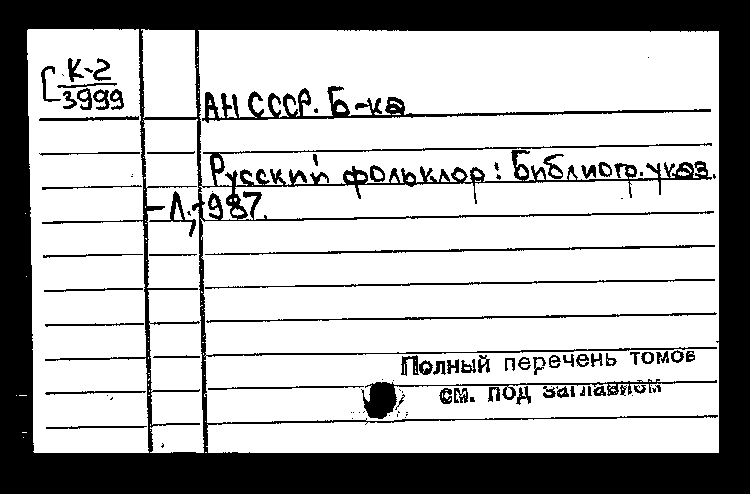 К-2
3999
АН СССР. Б-ка
Русский фольклор: Библиогр. указ.
– Л., 1987.
Полный перечень томов
см. под заглавием